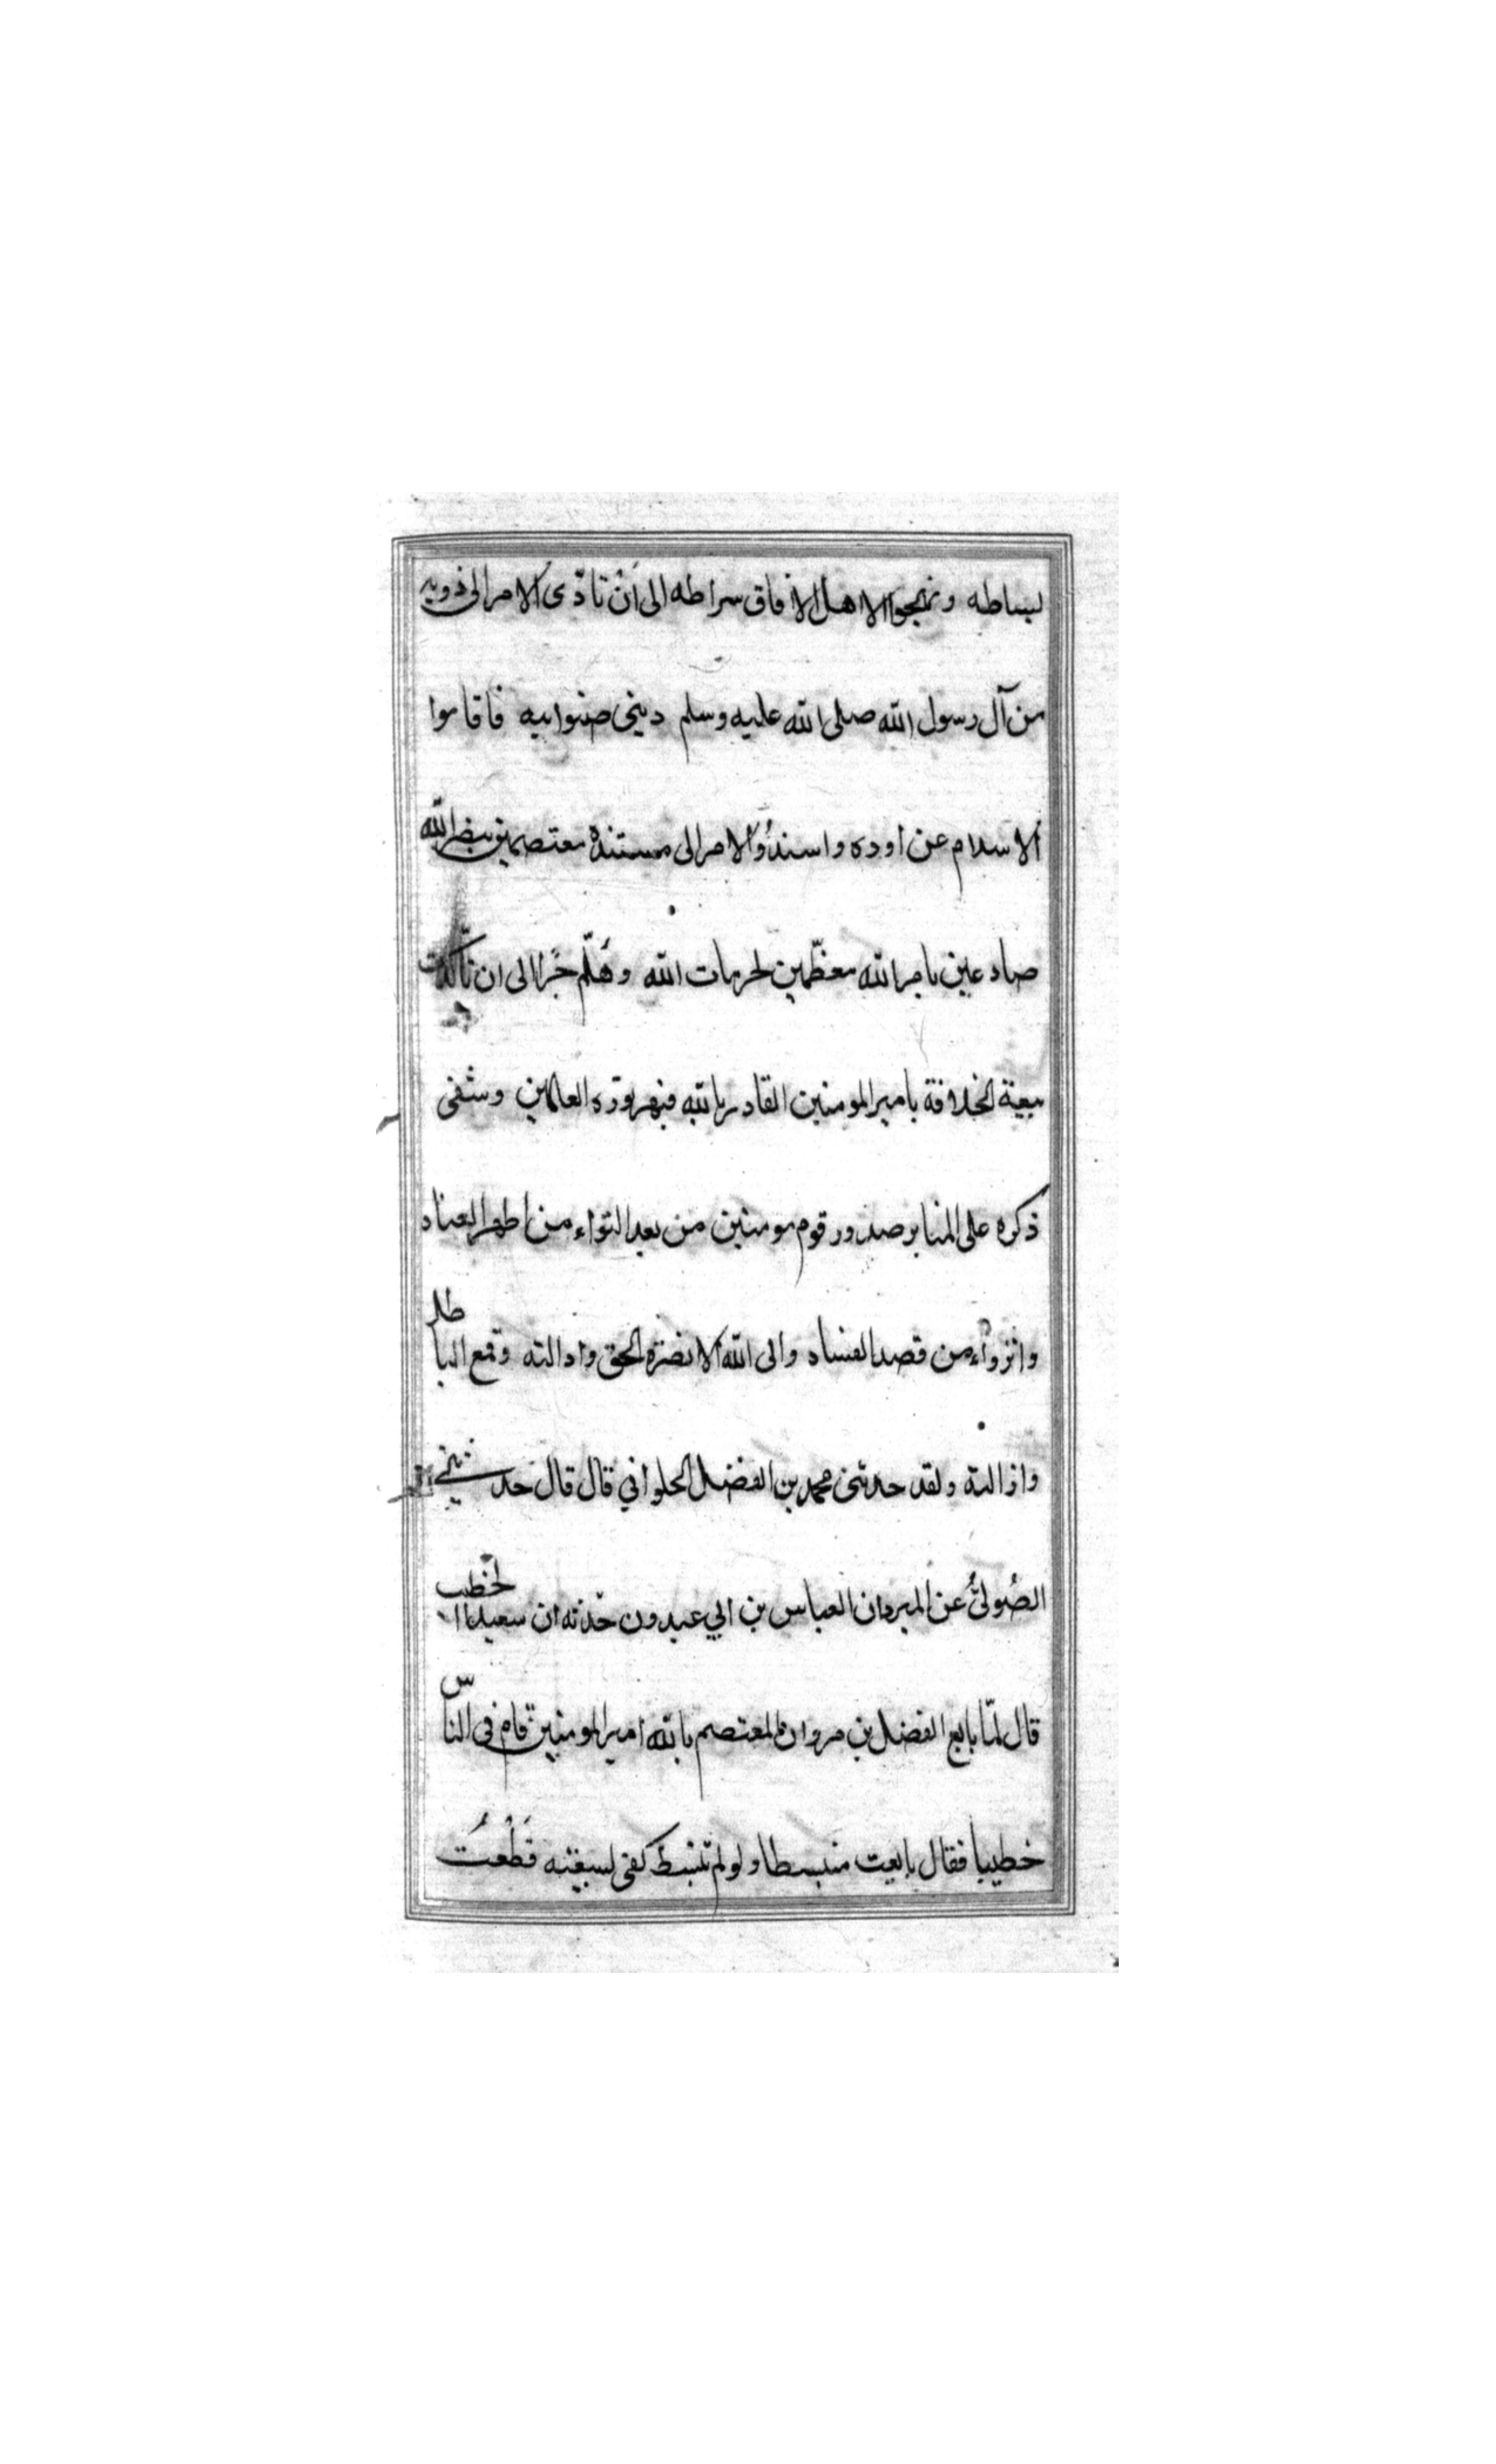 بساطه ونهجوا لاهل الافاق سراطه الى اَنْ تادّى الامر الى ذويه
من آل رسول الله صلى الله عليه وسلم وبنى صنو ابيه فاقاموا
الاسلام عن اوده واسندُوا الامر الى مستنده معتصمين بنصر الله
صادعين بامر الله معظّمين لحرمات الله وهَلُمّ جَرا الى ان تأكدت
بيعة الخلافة بامير المومنين القادر بالله فبهر نوره العالمين وشفى
ذكره على المنابر صدور قوم مومنين من بعد التواء من اظهر العناد
وانزواء من قصد الفساد والى الله الا نصرة الحق وادالته وقمع الباطل
وازالته ولقد حدثنى محمد بن الفضل الحلواني قال قال حدثنى
الصُولىُّ عن المبرد ان العباس بن ابي عبدون حدّثه ان سعيدا الخطيب
قال لمّا بايع الفضل بن مروان المعتصم بالله امير المومنين قام فى الناس
خطيبا فقال بايعت منبسطا ولو لم تنبسط كفى لبيعته قَطْعتُ